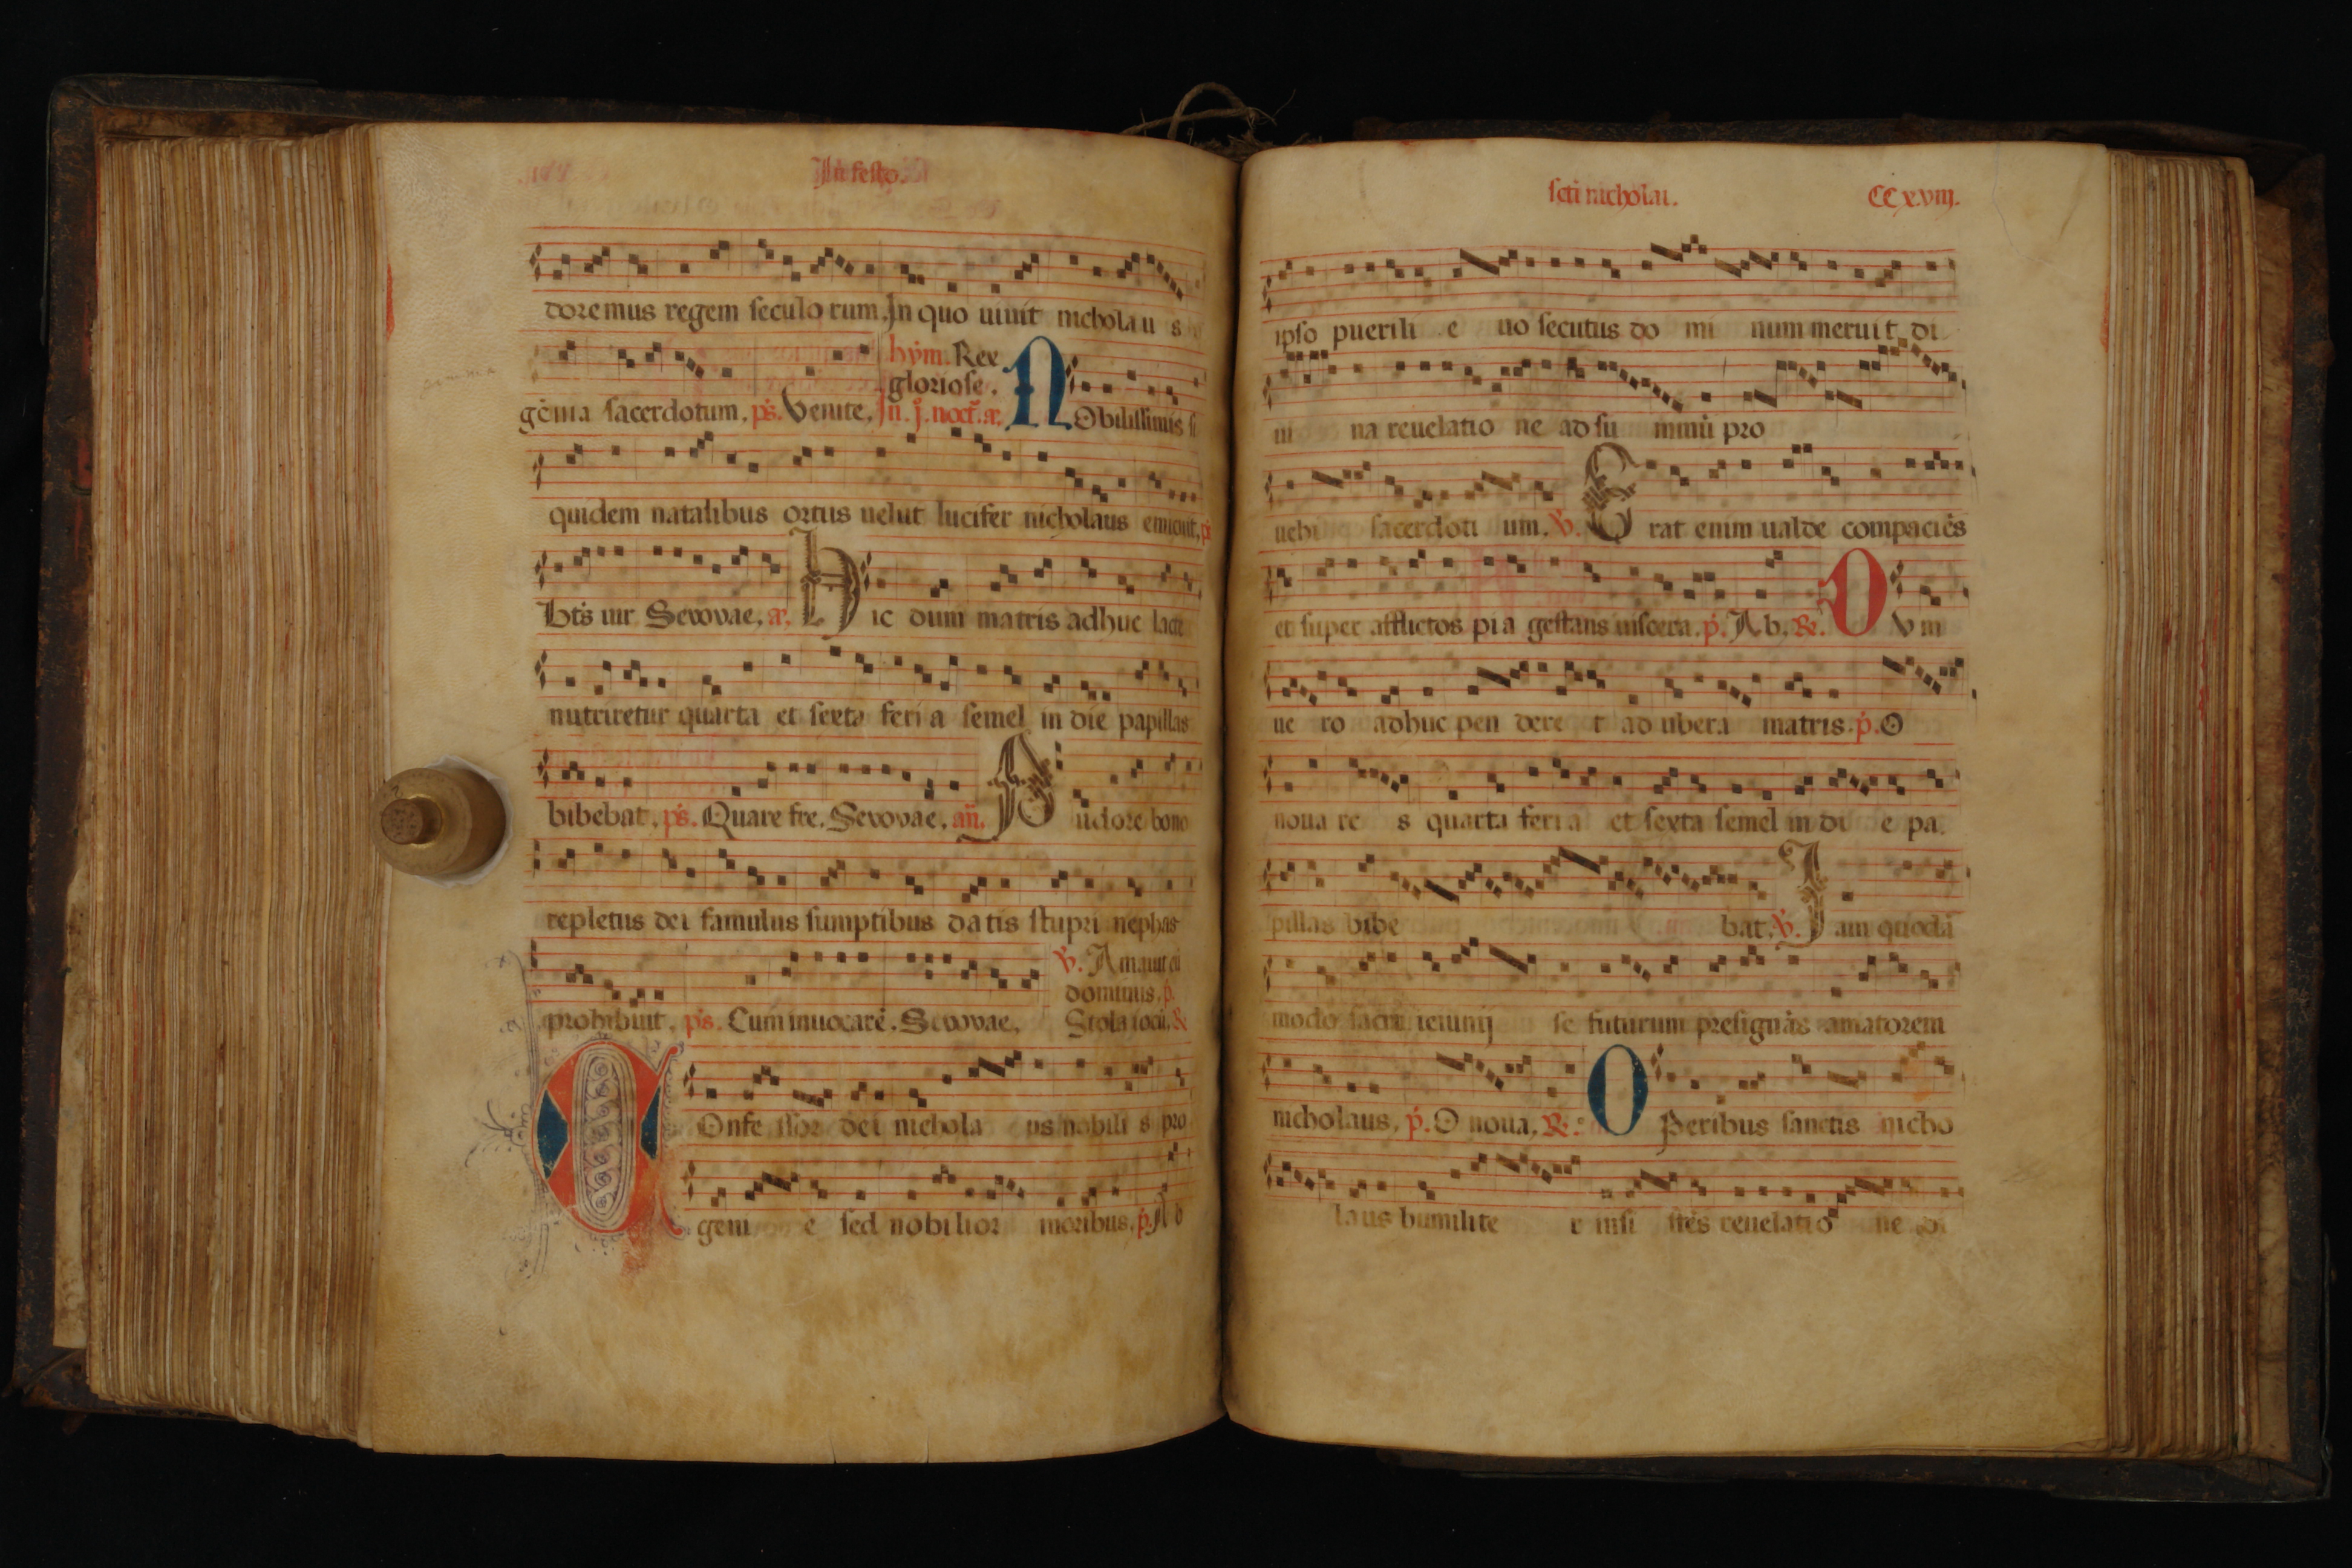 In festo.
doremus regem seculo rum. In quo uiuit nicholau s
hym. Rex
gloriose.
gema sacerdotum. ps. Venite. In. j. noct. a. NObilissimis si
quidem natalibus ortus uelut lucifer nicholaus emicuit. ps
Bts uir Seuouae. a. Hic dum matris adhuc lacte
nutriretur quarta et sexta feri a semel in die papillas
bibebat. ps. Quare fre. Seuouae. an. Pudore bono
repletus dei famulus sumptibus datis stupri nephas
V. Amauit eu
dominus. p.
prohibuit. ps. Cum inuocare. Seuouae. Stola iocu. R
COnfe ssor dei nichola us nobili s pro
geni e sed nobilior moribus. p. Ab
scti nicholai. CCxviij.
ipso puerili e uo secutus do mi num meruit di
ui na reuelatio ne ad su mmu pro
uehi sacerdoti um. V. Erat enim ualde compaciens
et super afflictos pia gestans uiscera. p. Ab. R. DVm
ue ro adhuc pen dere t ad ubera matris. p. O
noua re s quarta feria et sexta semel in di e pa
pillas bibe bat. V. Iam quoda
modo sacri ieiunij se futurum presignas amatorem
nicholaus. p. O noua. R. OPeribus sanctis nicho
laus humilite r insi stes reuelatio ne di